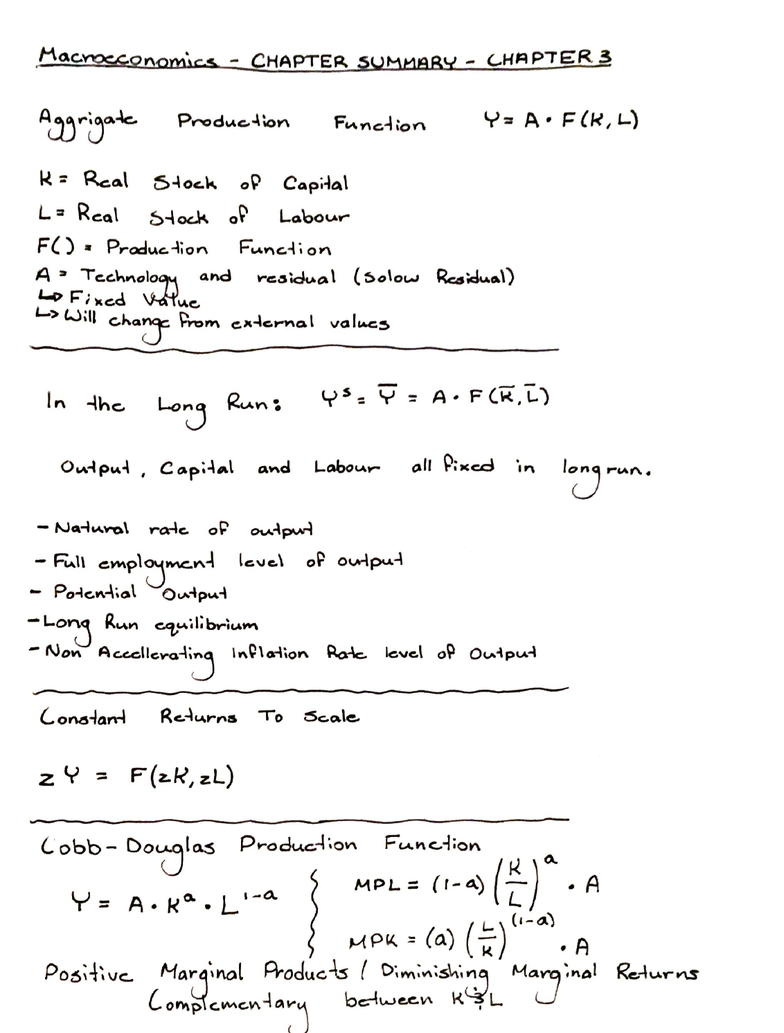 Macroeconomics - CHAPTER SUMMARY - CHAPTER 3
Aggrigate Production Function Y = A • F(K, L)
K = Real Stock of Capital
L = Real Stock of Labour
F() = Production Function
A = Technology and residual (Solow Residual)
↳ Fixed Value
↳ Will change from external values
In the Long Run: Yˢ = Y̅ = A • F(K̅, L̅)
Output, Capital and Labour all fixed in long run.
- Natural rate of output
- Full employment level of output
- Potential Output
- Long Run equilibrium
- Non Accellerating Inflation Rate level of Output
Constant Returns To Scale
zY = F(zK, zL)
Cobb-Douglas Production Function
Y = A • Kᵃ • L¹⁻ᵃ
MPL = (1-a) (K/L)ᵃ • A
MPK = (a) (L/K)⁽¹⁻ᵃ⁾ • A
Positive Marginal Products / Diminishing Marginal Returns
Complementary between K & L